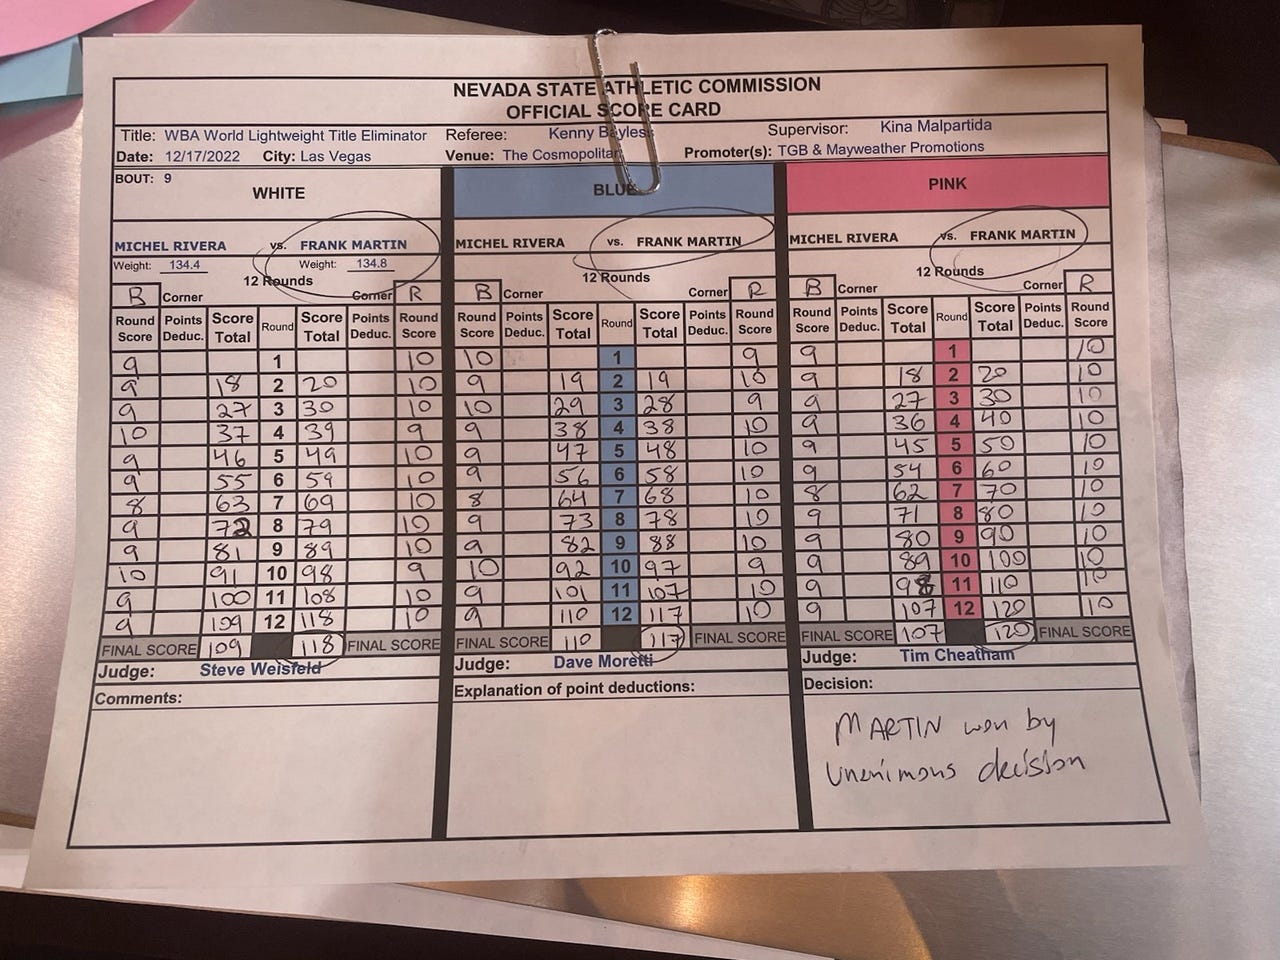 NEVADA STATE ATHLETIC COMMISSION
OFFICIAL SCORE CARD
Title: WBA World Lightweight Title Eliminator Referee: Kenny Bayless Supervisor: Kina Malpartida
Date: 12/17/2022 City: Las Vegas Venue: The Cosmopolitan Promoter(s): TGB & Mayweather Promotions
BOUT: 9
WHITE BLUE PINK
MICHEL RIVERA vs. FRANK MARTIN MICHEL RIVERA vs. FRANK MARTIN MICHEL RIVERA vs. FRANK MARTIN
Weight: 134.4 Weight: 134.8
12 Rounds 12 Rounds 12 Rounds
B Corner Corner R B Corner Corner R B Corner Corner R
Round Score Points Deduc. Score Total Round Score Total Points Deduc. Round Score Round Score Points Deduc. Score Total Round Score Total Points Deduc. Round Score Round Score Points Deduc. Score Total Round Score Total Points Deduc. Round Score
9 1 10 10 1 9 9 1 10
9 18 2 20 10 9 19 2 19 10 9 18 2 20 10
9 27 3 30 10 10 29 3 28 9 9 27 3 30 10
10 37 4 39 9 9 38 4 38 10 9 36 4 40 10
9 46 5 49 10 9 47 5 48 10 9 45 5 50 10
9 55 6 59 10 9 56 6 58 10 9 54 6 60 10
8 63 7 69 10 8 64 7 68 10 8 62 7 70 10
9 72 8 79 10 9 73 8 78 10 9 71 8 80 10
9 81 9 89 10 9 82 9 88 10 9 80 9 90 10
10 91 10 98 9 10 92 10 97 9 9 89 10 100 10
9 100 11 108 10 9 101 11 107 10 9 98 11 110 10
9 109 12 118 10 9 110 12 117 10 9 107 12 120 10
FINAL SCORE 109 118 FINAL SCORE FINAL SCORE 110 117 FINAL SCORE FINAL SCORE 107 120 FINAL SCORE
Judge: Steve Weisfeld Judge: Dave Moretti Judge: Tim Cheatham
Comments: Explanation of point deductions: Decision:
MARTIN won by
unenimous decision